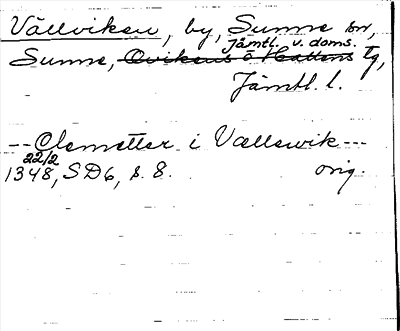 Vällviken, by, Sunne sn,
Jämtl. v. doms.
Sunne, Ovikens o Hallens tg,
Jämtl. l.
-- Clemetter i Vællewik ---
22/2
1348, SD6, s. 8. orig.